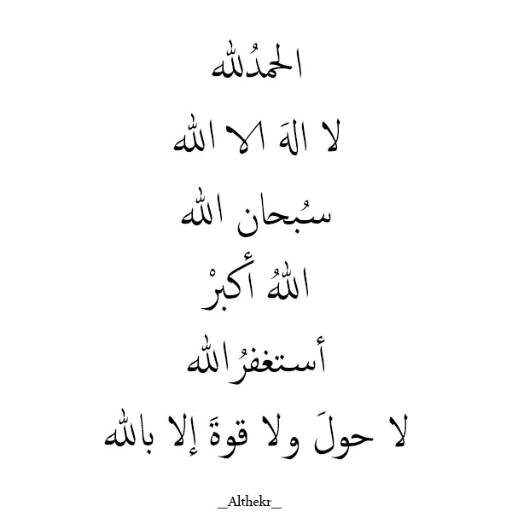 الحمدُلله
لا الهَ الا الله
سُبحان الله
اللهُ أكبرْ
أستغفرُالله
لا حولَ ولا قوةَ إلا بالله
__Althekr__